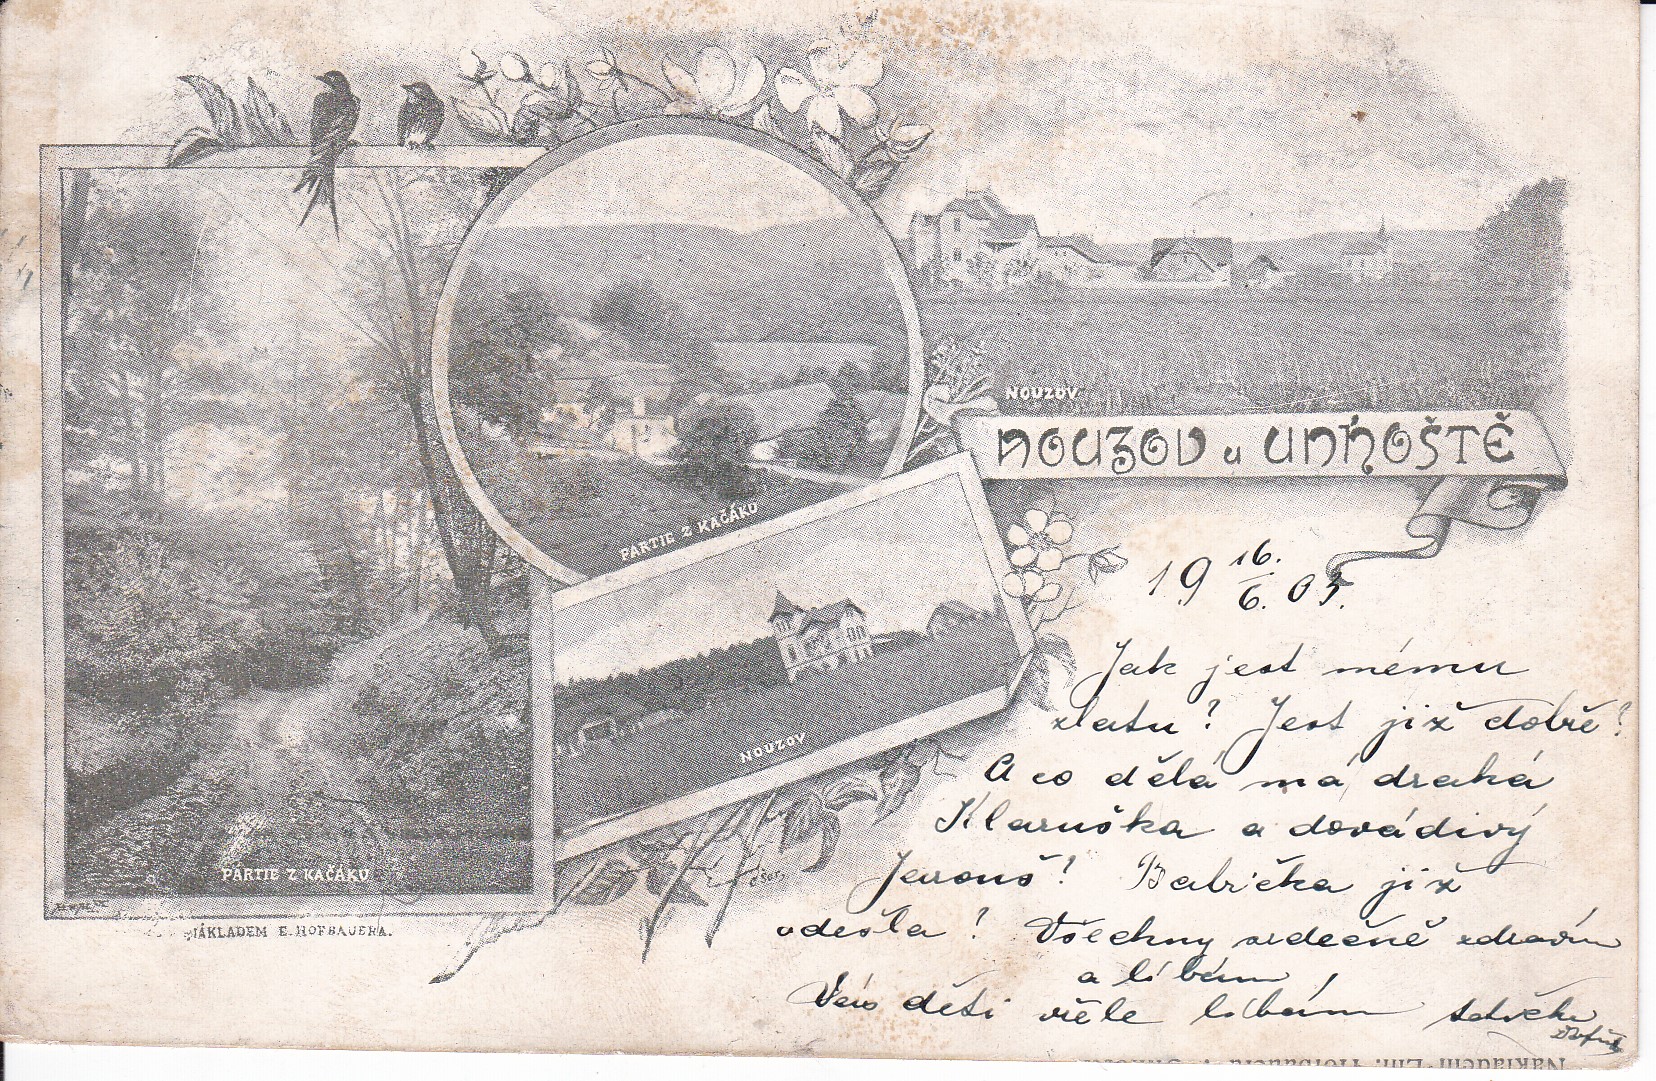 NOUZOV
NOUZOV u UNHOŠTĚ
PARTIE Z KAČÁKU
NOUZOV
PARTIE Z KAČÁKU
NÁKLADEM E. HOFBAUERA.
19 16./6. 03.
Jak jest mému
zlatu? Jest již dobře?
A co dělá má drahá
Klaruška a dovádivý
Jarouš? Babička již
odešla? Všechny srdečně zdravím
a líbám,
Vás děti vřele líbám
Nákladem Em. Hofbauera